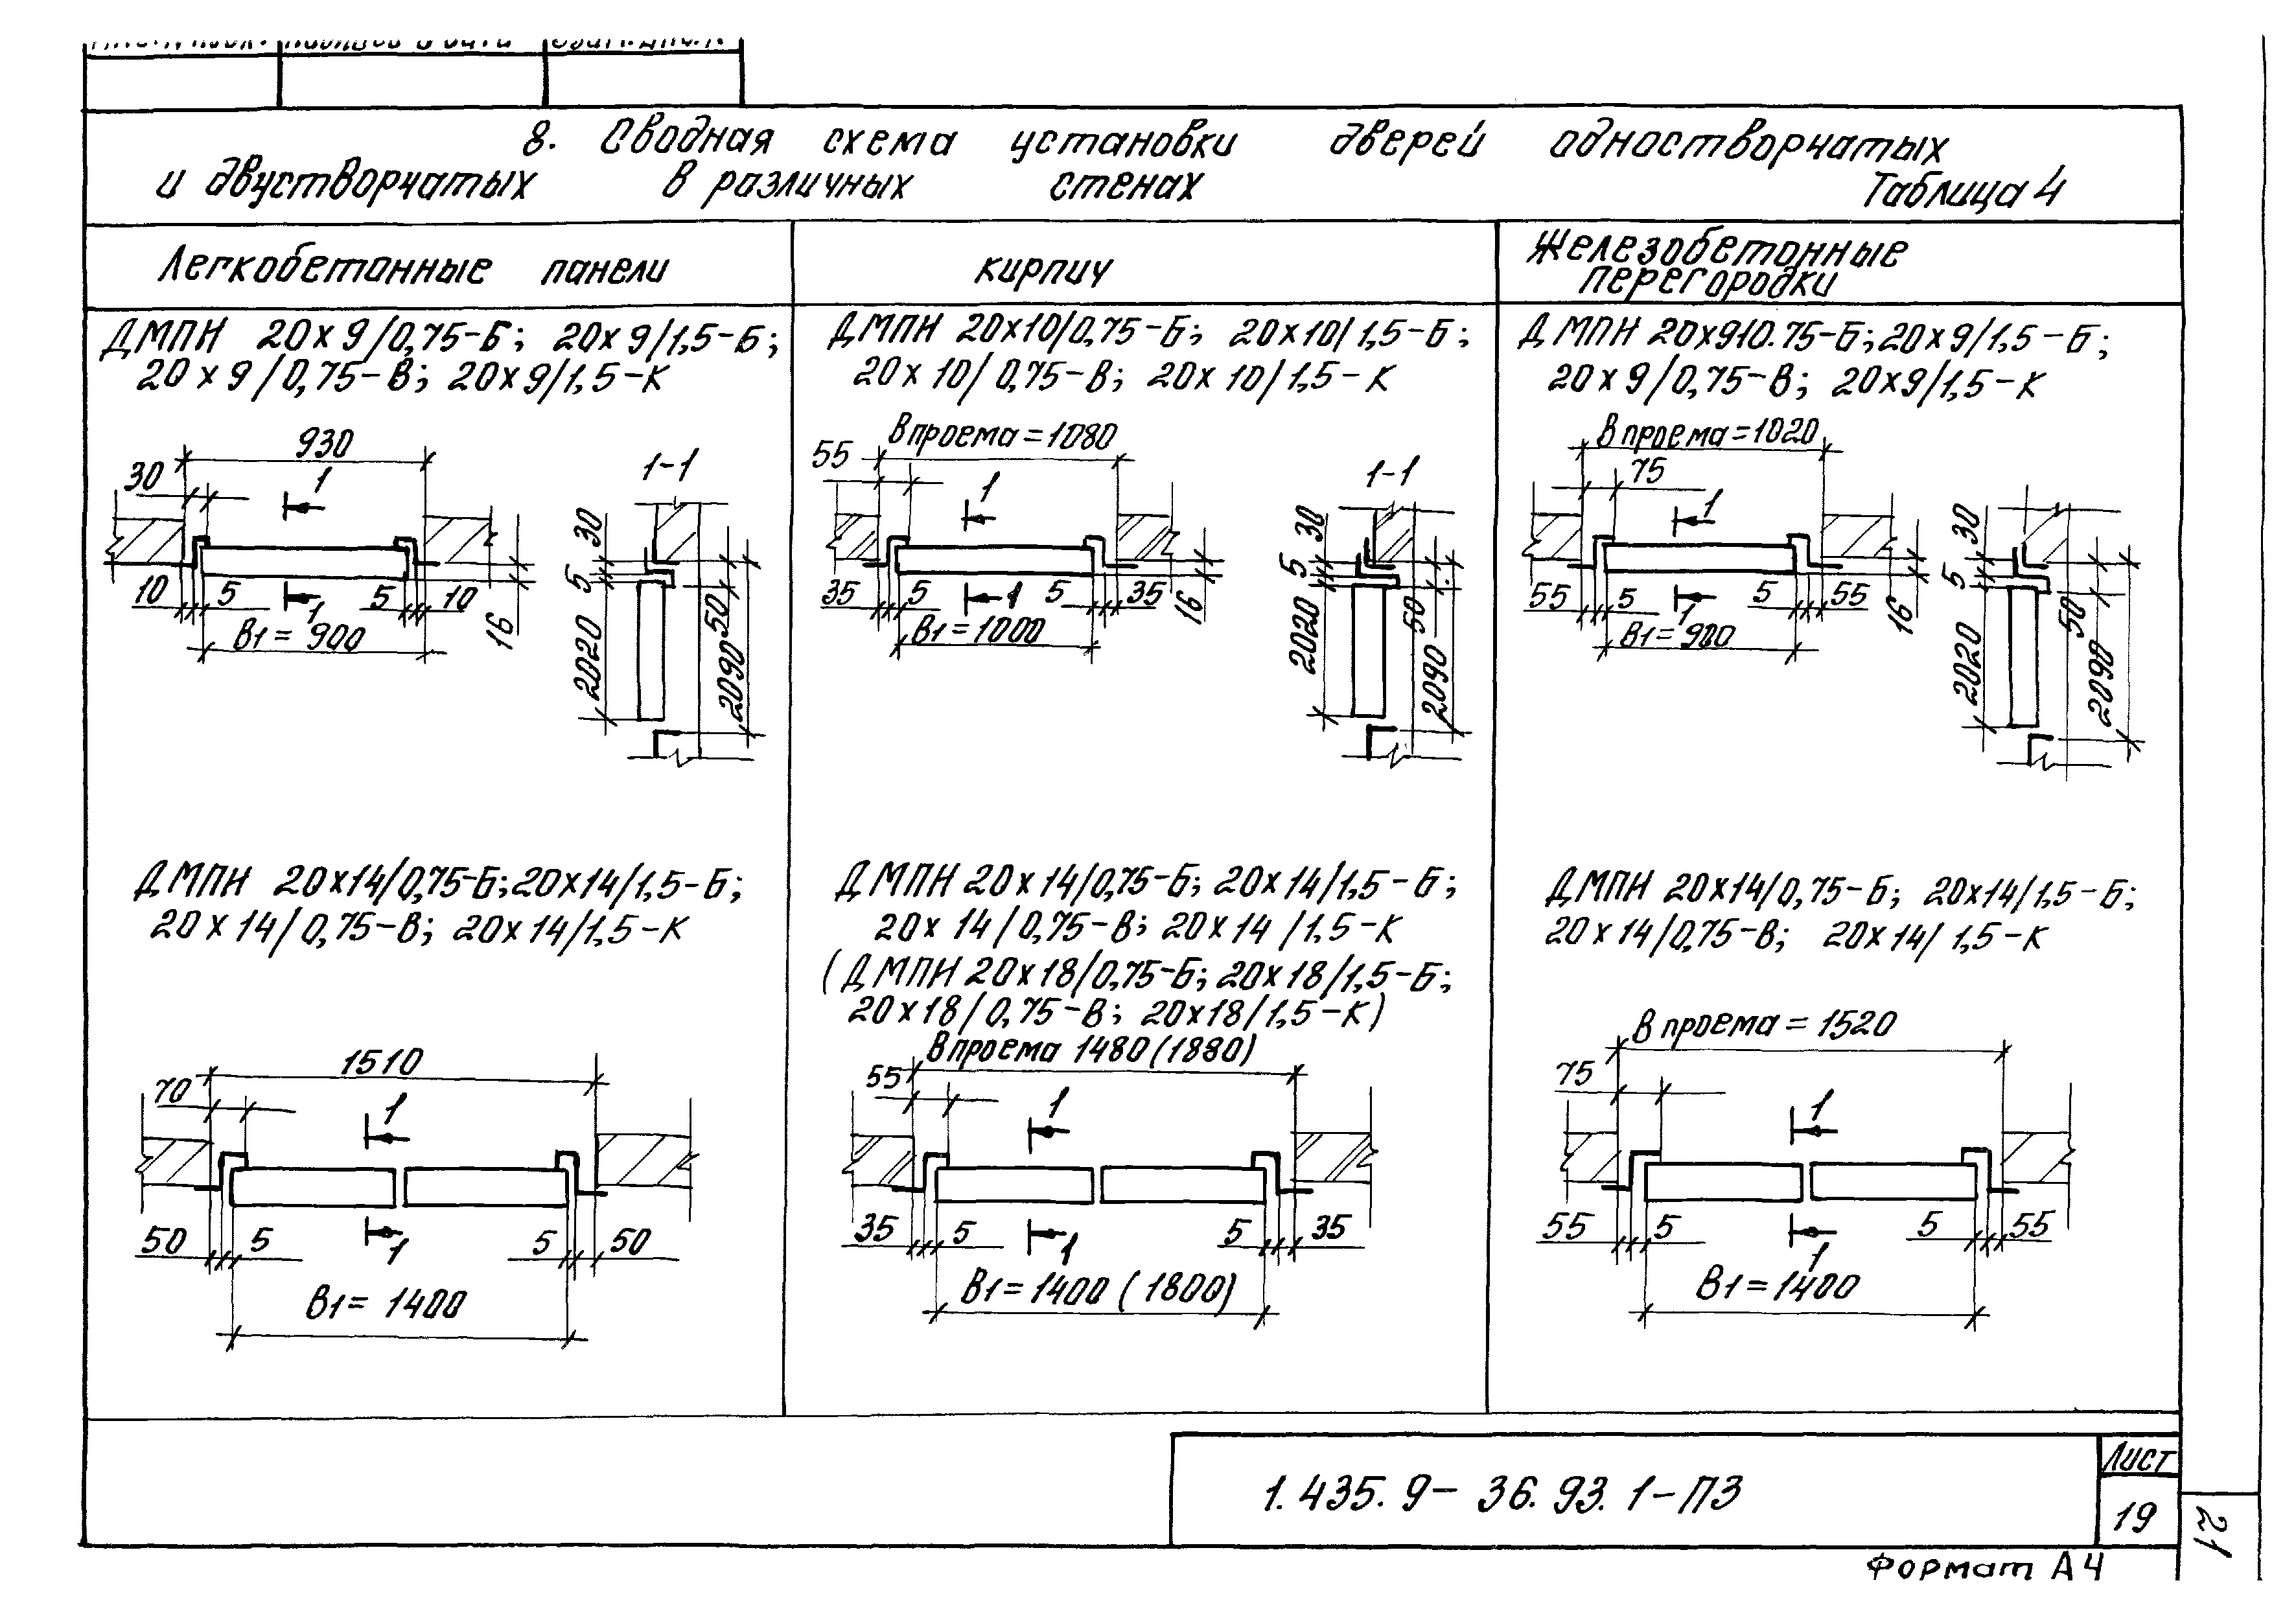 8. Сводная схема установки дверей одностворчатых
и двустворчатых в различных стенах
Таблица 4
Легкобетонные панели
кирпич
Железобетонные
перегородки
ДМПН 20х9/0,75-Б; 20х9/1,5-Б;
20х9/0,75-В; 20х9/1,5-К
930
30
1
1-1
30
5
10
5
1
5
10
16
В1=900
2020
50
2090
ДМПН 20х10/0,75-Б; 20х10/1,5-Б;
20х10/0,75-В; 20х10/1,5-К
В проема=1080
55
1
1-1
30
5
35
5
1
5
35
16
В1=1000
2020
50
2090
ДМПН 20х910.75-Б; 20х9/1,5-Б;
20х9/0,75-В; 20х9/1,5-К
В проема=1020
75
1
30
5
55
5
1
5
55
16
В1=900
2020
50
2090
ДМПН 20х14/0,75-Б; 20х14/1,5-Б;
20х14/0,75-В; 20х14/1,5-К
1510
70
1
50
5
1
5
50
В1=1400
ДМПН 20х14/0,75-Б; 20х14/1,5-Б;
20х14/0,75-В; 20х14/1.5-К
(ДМПН 20х18/0,75-Б; 20х18/1,5-Б;
20х18/0,75-В; 20х18/1,5-К)
В проема 1480(1880)
55
1
35
5
1
5
35
В1=1400 (1800)
ДМПН 20х14/0,75-Б; 20х14/1,5-Б;
20х14/0,75-В; 20х14/1,5-К
В проема=1520
75
1
55
5
1
5
55
В1=1400
1.435.9-36.93.1-ПЗ
Лист
19
21
Формат А4